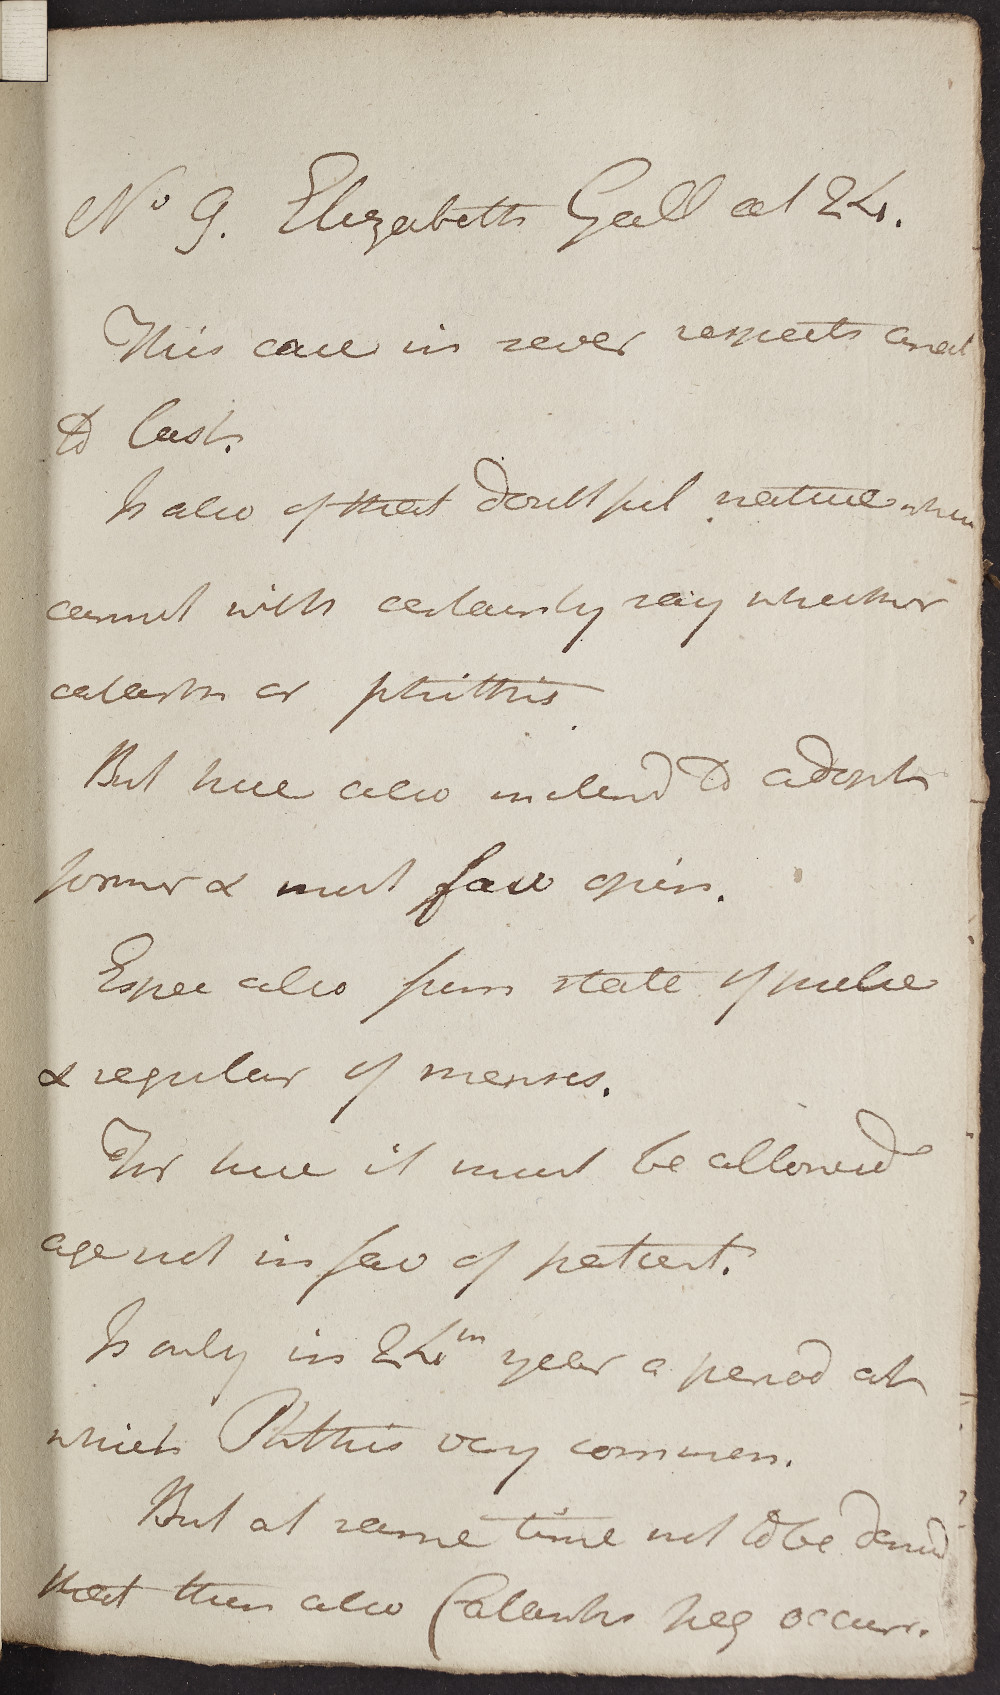 No 9. Elizabeth Gall at 24.
This case in sever respects anal
to last.
Is also of that doubtful nature when
cannot with certainty say whether
catarrh or phthisis
But here also inclend to adopt
former & most fav opin.
Espec also from state of pulse
& regular of menses.
For here it must be allowed
age not in fav of patient.
Is only in 24th year a period at
which Phthis very common.
But at same time not to be denied
that then also Catarrh freq occurr.